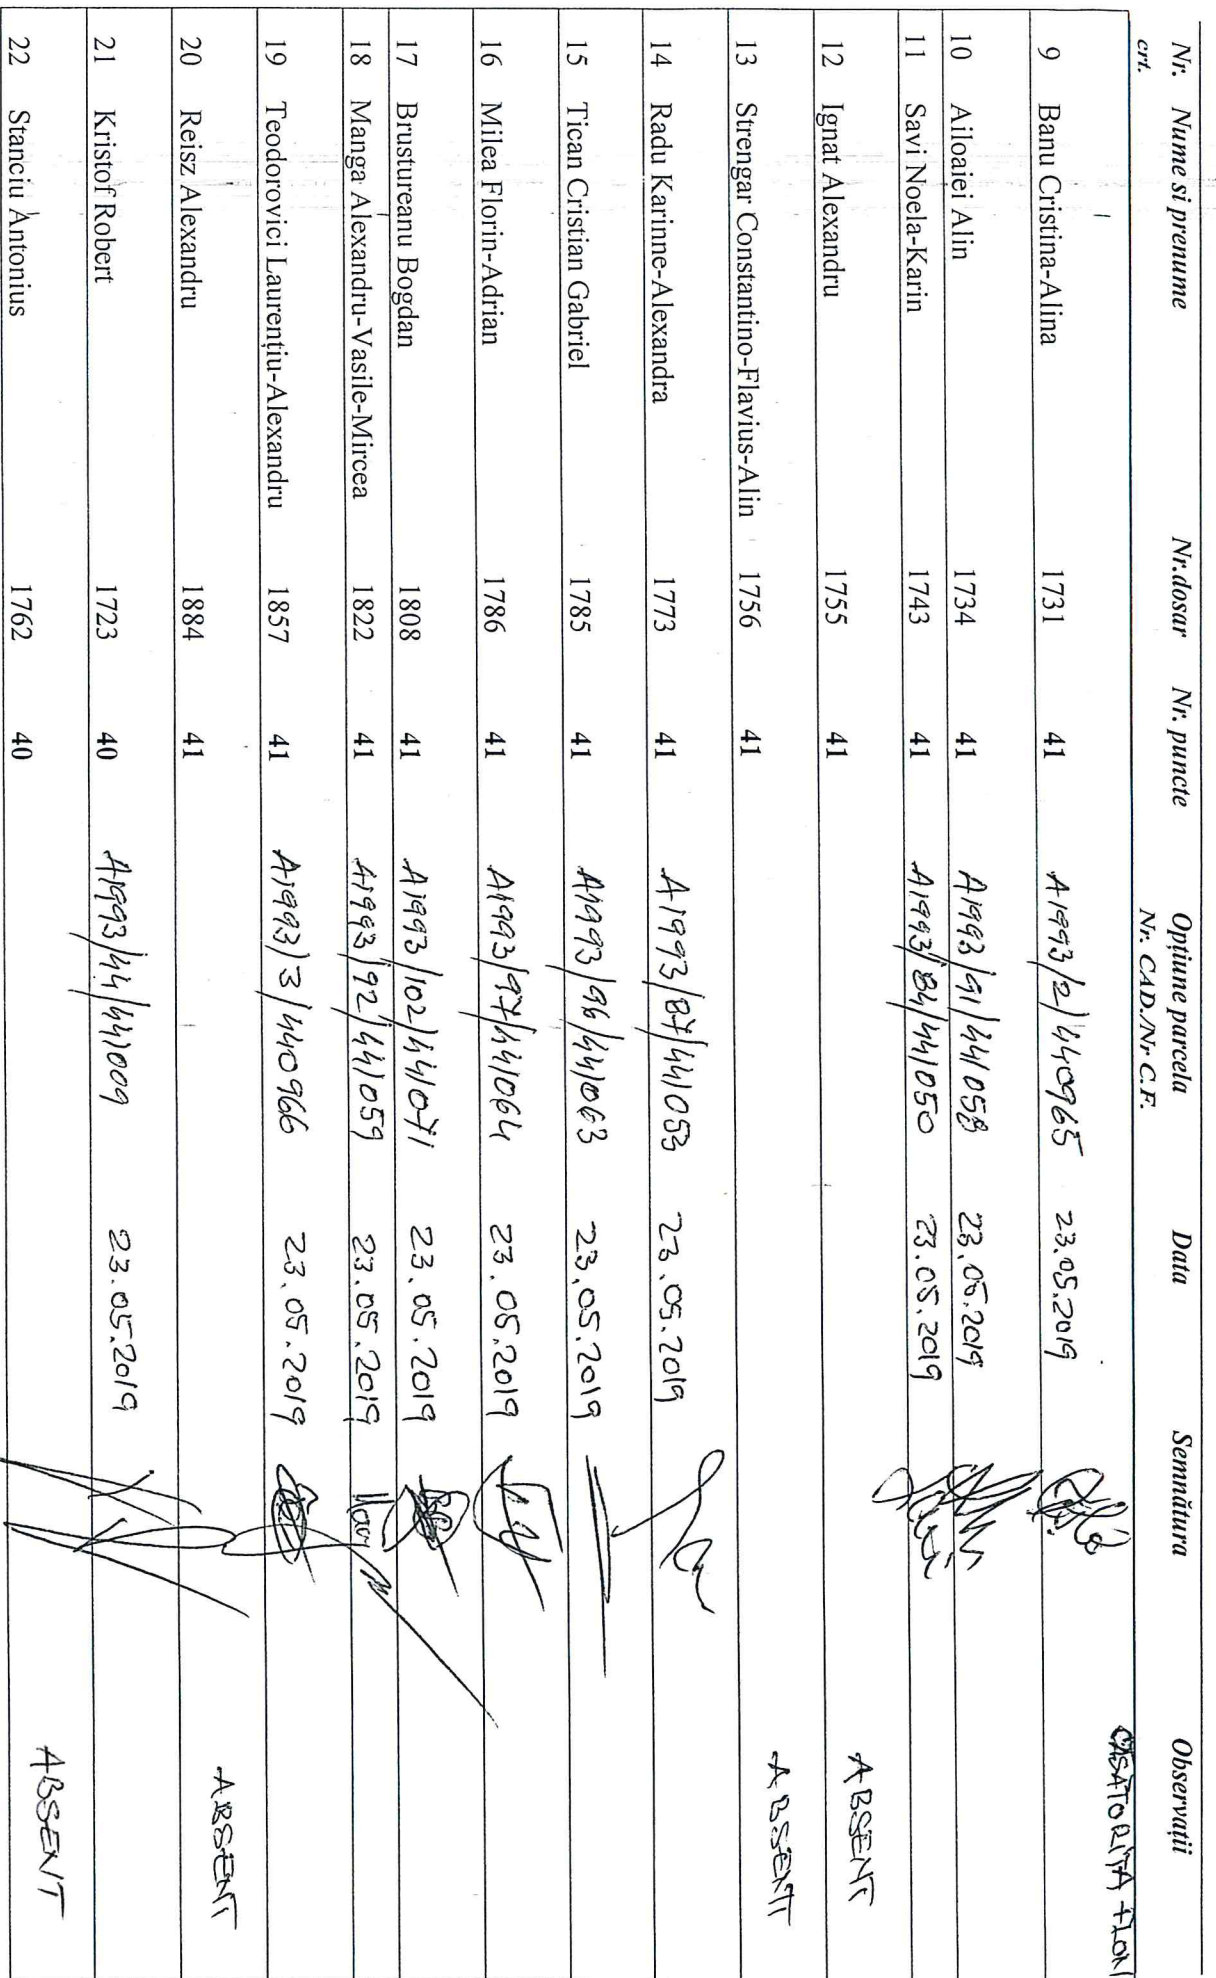 Nr. Nume si prenume Nr.dosar Nr. puncte Opţiune parcela Data Semnătura Observaţii
crt. Nr. CAD./Nr C.F.
CASATORITA
9 Banu Cristina-Alina 1731 41 A1993/2/440965 23.05.2019
10 Ailoaiei Alin 1734 41 A1993/91/441058 23.05.2019
11 Savi Noela-Karin 1743 41 A1993/84/441050 23.05.2019
12 Ignat Alexandru 1755 41 ABSENT
13 Strengar Constantino-Flavius-Alin 1756 41 ABSENT
14 Radu Karinne-Alexandra 1773 41 A1993/87/441053 23.05.2019
15 Tican Cristian Gabriel 1785 41 A1993/96/441063 23.05.2019
16 Milea Florin-Adrian 1786 41 A1993/97/441064 23.05.2019
17 Brustureanu Bogdan 1808 41 A1993/102/441071 23.05.2019
18 Manga Alexandru-Vasile-Mircea 1822 41 A1993/92/441059 23.05.2019
19 Teodorovici Laurenţiu-Alexandru 1857 41 A1993/3/440966 23.05.2019
20 Reisz Alexandru 1884 41 ABSENT
21 Kristof Robert 1723 40 A1993/44/441009 23.05.2019
22 Stanciu Antonius 1762 40 ABSENT